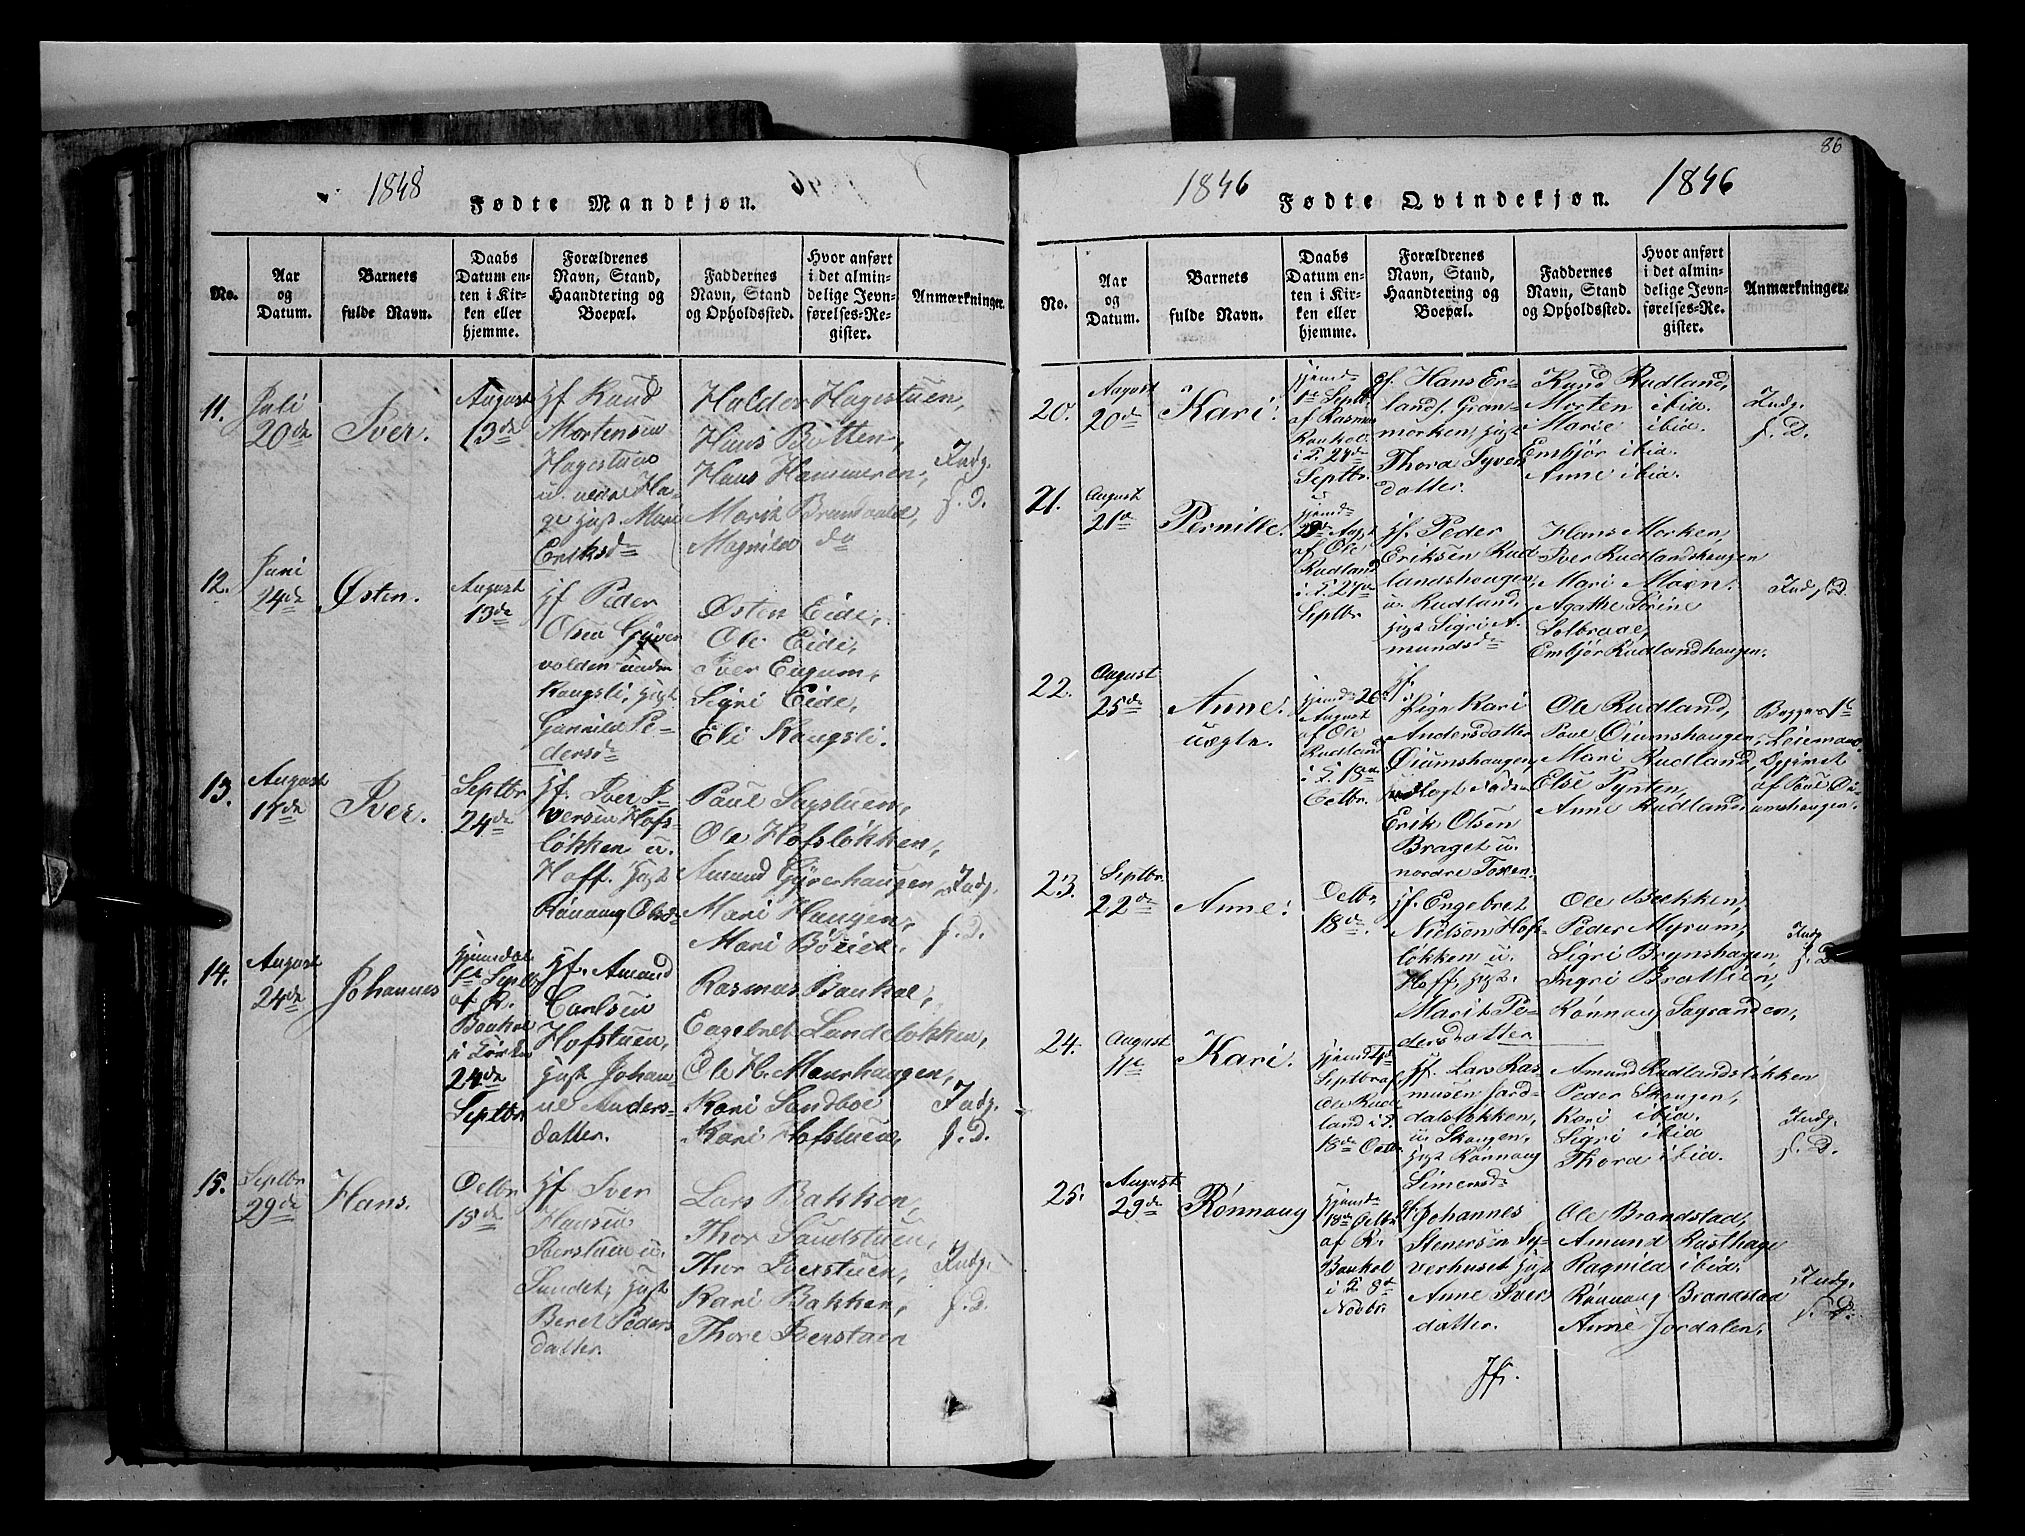 86
1848
Fødte Mandkjøn.
No.
Aar
og
Datum.
Barnets
fulde Navn.
Daabs
Datum en-
ten i Kir-
ken eller
hjemme.
Forældrenes
Navn, Stand,
Haandtering og
Boepæl.
Faddernes
Navn, Stand
og Opholdssted.
Hvor anført
i det almin-
delige Jevn-
førelses-Re-
gister.
Anmærkninger.
11.
Juli
20de
Iver.
August
13de
Jf. Knud
Mortensen
Hagestuen
u. nerre Ha-
ge Hust. Mari
Eriksd
Halder Hagestuen,
Hans
Hans Hammeren,
Marit
Magnild do
Indg.
f. D.
12.
Juni
24de
Østen.
August
13de
Jf. Peder
Olsen
volden under
Kongsli, Hust.
Gunnild Pe-
dersd
Østen Eide,
Ole Eide,
Iver Engum,
Sigri Eide,
Eli Kongsli.
13.
August
Iver.
Septbr
24de
Jf. Iver I-
versen Hofs-
løkken u.
Hoff. Hust
Rønnaug Olsd
Paul
Ole Hofsløkken,
Amund
Mari Haugen,
Mari
Indg.
f. D.
14.
August
24de
Johannes
Septb
af R.
Baukol
24de
Septbr
Jf. Amund
Carlsen
Hofstuen,
Hust Johan-
ne Anders-
datter.
Rasmus Baukol,
Engebret Lundeløkken,
Ole H. Maurhaugen,
Kari Sandboe
Kari Hofstuen,
Indg.
f. D.
15.
Septbr
29de
Hans.
Octbr
15de
Jf Iver
Hansen
Iverstuen u.
Sundet, Hust
Beret Peders
datter.
Lars Bakken,
Thor
Thor Iverstuen,
Kari Bakken,
Thore Iverstuen
Indg.
f. D.
1846
Fødte Qvindekjøn.
1846
No.
Aar
og
Datum.
Barnets
fulde Navn.
Daabs
Datum en-
ten i Kir-
ken eller
hjemme.
Forældrenes
Navn, Stand,
Haandtering og
Boepæl.
Faddernes
Navn, Stand
og Opholdssted.
Hvor anført
i det almin-
delige Jevn-
førelses-Re-
gister.
Anmærkninger.
20.
August
20de
Kari.
hjemd
1ste Septb.
af Rasmus
Baukol
Septbr.
Jf. Hans Er-
lands. Gran-
morken, Hust
Thora Syver
datter.
Knud Rudland,
Morten ibid.
Marie ibid.
Embjør ibid.
Anne ibid.
Indg.
f. D.
21.
August
21de
Pernille.
hjemd
af Ole
Rudland
i K. 27de
Septbr
Jf. Peder
Eriksen Rud-
landshougen,
u. Rudland,
Hust Sigri A-
mundsd
Hans Morken,
Iver Rudlandshaugen
Mari
Agathe Sørine
Solbraae,
Embjør Rudlandhaugen.
Indg f. D.
22.
August
25de
Anne.
uægte.
hjemd 26de
August
af Ole
Rudland
i K. 18de
Octbr.
Jf.
Pige Kari
Andersdatter
Øiumshaugen,
udlagt
Erik Olsen
Braget u.
nordre
Ole Rudland,
Paul Øiumshaugen,
Mari Rudland,
Else Pynten,
Anne Rudland
Begges 1ste
Leiermaal.
Opgivet
af Paul Øi-
umshaugen.
23.
Septbr.
22de
Anne.
Octbr.
18de
Jf. Engebret
Nielsen Hof-
løkken u.
Hoff, Hust.
Marit Pe-
dersdatter
Ole Bakken,
Peder Myrum,
Sigri Brynshagen,
Ingri Bratlien,
Rønnaug Sagranden,
Indg
f. D.
24.
August
11te
Kari.
Septbr af
Ole Rud-
land i K.
18de Octbr
Jf. Lars Ras-
musen Jord-
dalsløkken,
u. Skougen,
Hust Rønnaug
Simensd
Amund Rudlandsløkken
Peder Skougen,
Kari ibid.
Sigri ibid
Thora ibid.
Indg.
f. D.
25.
August
29de
Rønnaug
hjemd
18de Octbr
af R.
Baukol
i K 8de
Novbr.
Jf. Johannes
Stenersen Sy-
verhuset Hust
Anne Ivers
datter.
Ole Brandstad,
Amund Rusthage
Ragnild ibid.
Rønnaug Brandstad
Anne Jordalen,
Indg.
f. D.
Jf.